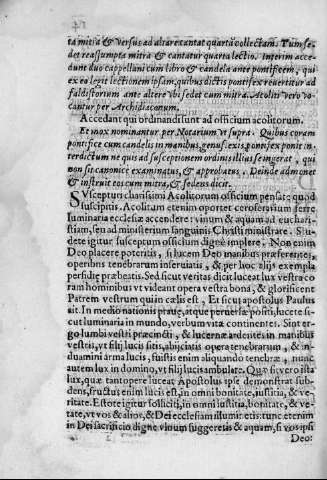 ta mitra & versus ad altare cantat quartã collectam. Tum se-
det reassumpta mitra & cantatur quarta lectio. Interim acce-
dunt duo cappellani cum libro & candela ante pontificem, qui
ex eo legit lectionem ipsam, quibus dictis pontifex revertitur ad
faldistorium ante altare ubi sedet cum mitra. Acoliti vero vo-
cantur per Archidiaconum.
Accedant qui ordinandi sunt ad officium acolitorum.
Et mox nominantur per Notarium ut supra. Quibus coram
pontifice cum candelis in manibus, genuflexis, pontifex ponit in-
terdictum ne quis ad susceptionem ordinis illius se ingerat, qui
non sit canonice examinatus, & approbatus. Deinde admonet
& instruit eos cum mitra, & sedens dicit.
SUscepturi charissimi Acolitorum officium pensate quod
suscipitis. Acolitum etenim oportet ceroferarium ferre
luminaria ecclesiæ accendere: vinum & aquam ad euchari-
stiam, seu ad ministerium sanguinis Christi ministrare. Stu-
dete igitur susceptum officium digne implere. Non enim
Deo placere poteritis, si lucem Deo manibus præferentes,
operibus tenebrarum inserviatis, & per hoc aliis exempla
persidię præbeatis. Sed sicut veritas dicit luceat lux vestra co
ram hominibus vt videant opera vestra bona, & glorificent
Patrem vestrum qui in cælis est, Et sicut apostolus Paulus
ait. In medio nationis pravę, atque perversę positi, lucete si-
cut luminaria in mundo, verbum vitæ continentes. Sint er-
go lumbi vestri præcincti, & lucernæ ardentes in manibus
vestris, vt filij lucis sitis, abijciatis opera tenebrarum, & in-
duamini arma lucis, fuistis enim aliquando tenebræ, nunc
autem lux in domino, vt filij lucis ambulate. Quæ sit vero ista
lux, quæ tantopere luceat, Apostolus ipse demonstrat sub-
dens, fructus enim lucis est, in omni bonitate, iustitia, & ve-
ritate. Estote igitur solliciti, in omni iustitia, bonitate, & ve-
ritate, vt vos & alios, & Dei ecclesiam illuminetis: tunc etenim
in Dei sacrificio digne vinum suggeretis & aquam, si vos ipsi
Deo: